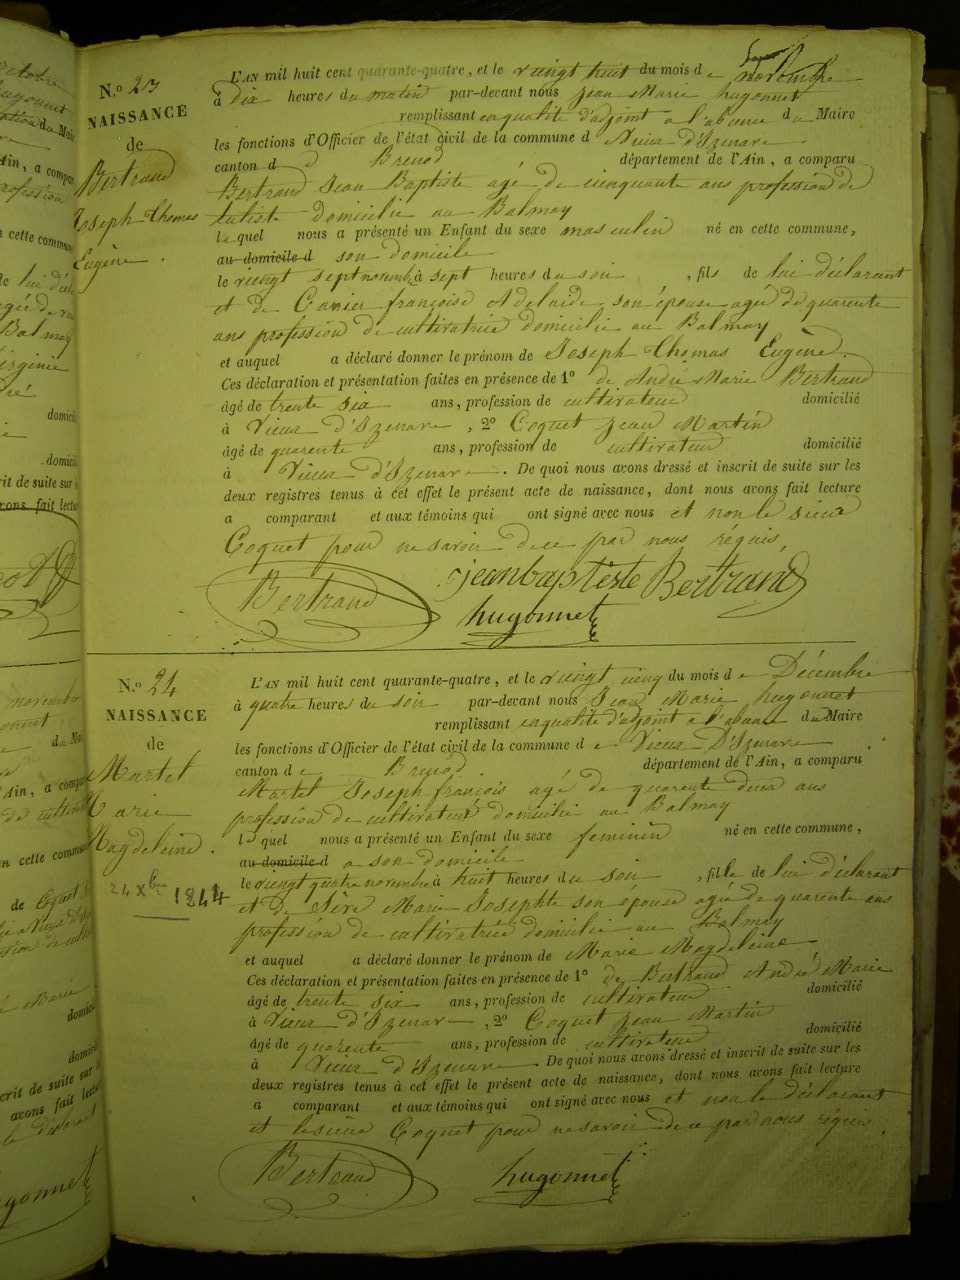 N.o 23
NAISSANCE
de
Bertrand
Joseph Thomas
Eugène.
L'AN mil huit cent quarante-quatre, et le vingt huit du mois de novembre
à dix heures du matin par-devant nous Jean Marie hugonnet
remplissant en qualité d'adjoint a l'absence du Maire
les fonctions d'Officier de l'état civil de la commune d Vieux D'Izenave
canton d Brenod département de l'Ain, a comparu
Bertrand Jean Baptiste agé de cinquante ans profession de
domicilié au Balmay
lequel nous a présenté un Enfant du sexe masculin né en cette commune,
au domicile d son domicile
le vingt sept novembre à sept heures du soir, fils de lui déclarant
et de françoise Adelaide son épouse agée de quarente
ans profession de cultivatrice domicilié au Balmay
et auquel a déclaré donner le prénom de Joseph Thomas Eugène.
Ces déclaration et présentation faites en présence de 1o de André Marie Bertrand
âgé de trente six ans, profession de cultivateur domicilié
à Vieux d'Izenave, 2o Coquet jean Martin
âgé de quarente ans, profession de cultivateur domicilié
à Vieux d'Izenave. De quoi nous avons dressé et inscrit de suite sur les
deux registres tenus à cet effet le présent acte de naissance, dont nous avons fait lecture
a comparant et aux témoins qui ont signé avec nous et non le sieur
Coquet pour ne savoir de ce par nous réquis,
Bertrand jeanbaptiste Bertrand
hugonnet
N.o 24
NAISSANCE
de
Martel
Marie
Magdeleine.
24 Xbre 1844
L'AN mil huit cent quarante-quatre, et le vingt cinq du mois de Décembre
à quatre heures du soir par-devant nous Jean Marie hugonnet
remplissant en qualité d'adjoint a l'absence du Maire
les fonctions d'Officier de l'état civil de la commune de Vieux D'Izenave
canton de Brenod. département de l'Ain, a comparu
Martel Joseph françois agé de quarente deux ans
profession de cultivateur domicilié au Balmay
lequel nous a présenté un Enfant du sexe feminin né en cette commune,
au domicile d a son domicile
le vingt quatre novembre à huit heures du soir, fille de lui déclarant
et de Marie Josephte son épouse agée de quarente ans
profession de cultivatrice domicilié au Balmay
et auquel a déclaré donner le prénom de Marie Magdeleine
Ces déclaration et présentation faites en présence de 1o de Bertrand André Marie
âgé de trente six ans, profession de cultivateur domicilié
à Vieux d'Izenave, 2o Coquet jean Martin
âgé de quarente ans, profession de cultivateur domicilié
à Vieux d'Izenave. De quoi nous avons dressé et inscrit de suite sur les
deux registres tenus à cet effet le présent acte de naissance, dont nous avons fait lecture
a comparant et aux témoins qui ont signé avec nous et non le déclarant
et le sieur Coquet pour ne savoir de ce par nous réquis.
Bertrand hugonnet